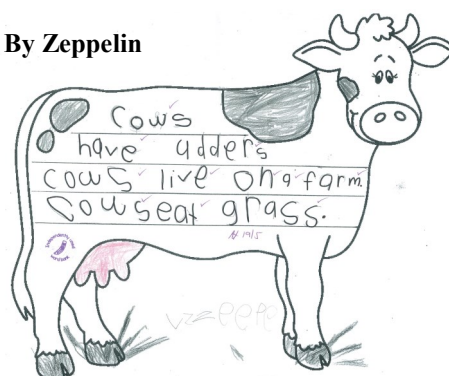 By Zeppelin
cows
have udders
cows live on a farm.
cows eat grass.